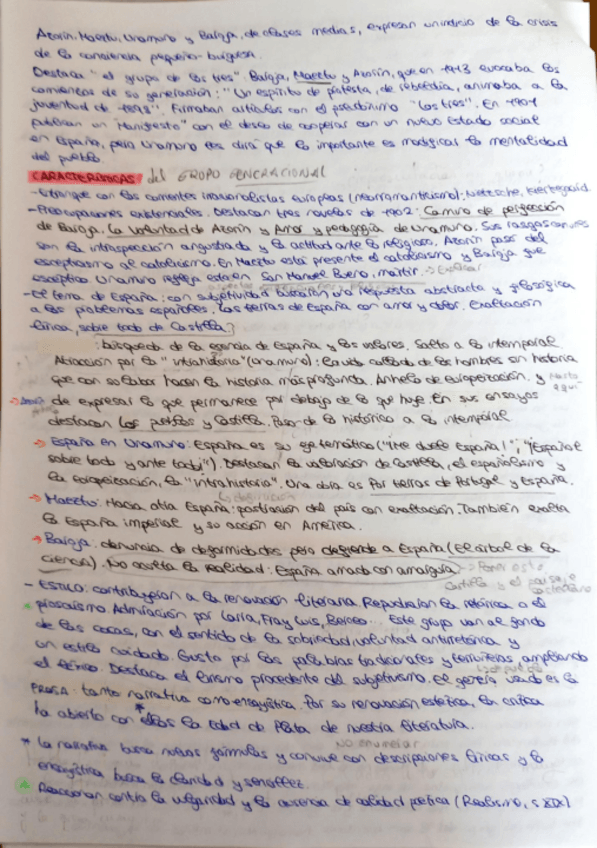 Azorín, Maeztu, Unamuno y Baroja, de clases medias, expresan un indicio de la crisis
de la conciencia pequeño-burguesa.
Destaca "el grupo de los tres": Baroja, Maeztu y Azorín, que en 1913 evocaba los
comienzos de su generación: "Un espíritu de protesta, de rebeldía, animaba a la
juventud de 1898". Firmaban artículos con el pseudónimo "Los tres". En 1901
publican un "Manifiesto" con el deseo de cooperar con un nuevo Estado social
en España, pero Unamuno les dirá que lo importante es modificar la mentalidad
del pueblo.
CARACTERÍSTICAS del GRUPO GENERACIONAL
- Entronque con las corrientes irracionalistas europeas (neorromanticismo): Nietzsche, Kierkegaard.
- Preocupaciones existenciales. Destacan tres novelas de 1902: Camino de perfección
de Baroja, La voluntad de Azorín y Amor y pedagogía de Unamuno. Sus rasgos comunes
son la introspección angustiada y la actitud ante lo religioso. Azorín pasó del
escepticismo al catolicismo. En Maeztu está presente el catolicismo y Baroja fue
escéptico. Unamuno refleja esta en San Manuel Bueno, mártir. → Explicar
- El tema de España: con subjetividad buscaron una respuesta abstracta y filosófica
a los problemas españoles. Las tierras de España con amor y dolor. Exaltación
lírica, sobre todo de Castilla.
: búsqueda de la esencia de España y los valores. Salto a lo intemporal.
Atracción por la "intrahistoria" (Unamuno): la vida callada de los hombres sin historia
que con su labor hacen la historia más profunda. Anhelo de europeización. y
→ Azorín de expresar lo que permanece por debajo de lo que huye. En sus ensayos
destacan los pueblos y Castilla. Paso de lo histórico a lo intemporal
→ España en Unamuno: España es su eje temático ("¡Me duele España!"; "¡Español
sobre todo y ante todo!"). Destacan la valoración de Castilla, el españolismo y
la europeización, la "intrahistoria". Una obra es Por tierras de Portugal y España.
→ Maeztu: Hacia otra España: postración del país con exaltación. También exalta
la España imperial y su acción en América.
→ Baroja: denuncia de deformidades pero defiende a España (El árbol de la
ciencia). No oculta la realidad: España amada con amargura → Poner esto
Castilla y el paisaje castellano
- ESTILO: contribuyeron a la renovación literaria. Repudiaron la retórica o el
* prosaísmo. Admiración por Larra, Fray Luis, Berceo... Este grupo van al fondo
de las cosas, con el sentido de la sobriedad, voluntad antirretórica y
un estilo cuidado. Gusto por las palabras tradicionales y terruñeras, ampliando
el léxico. Destaca el lirismo procedente del subjetivismo. El género usado es la
PROSA: tanto narrativa como ensayística. Por su renovación estética, la crítica
ha abierto con ellos la Edad de Plata de nuestra literatura.
No enumerar
* La narrativa busca nuevas fórmulas y convive con descripciones líricas y la
ensayística busca la claridad y sencillez.
* Reaccionan contra la vulgaridad y la ausencia de calidad poética (Realismo, s XIX)